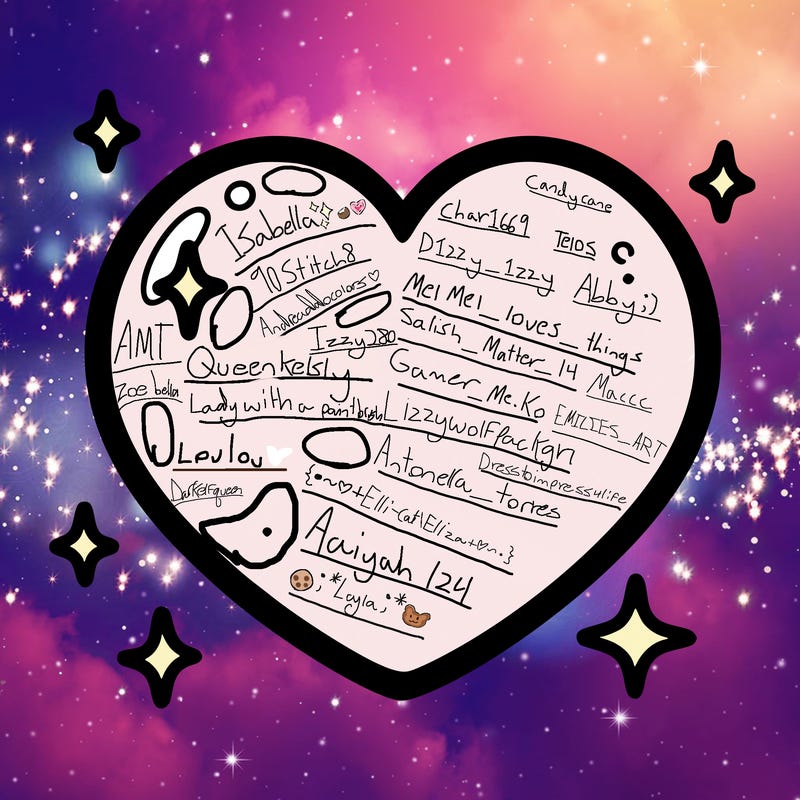 Isabella
90Stitch8
AMT
Izzy280
Queenkelsly
Zoe bella
Lady with a paintbrush
Loulou
Darkelfqueen
Candycane
Char1669
TeIOS
D1zzy_1zzy
Abby;)
MeI MeI_loves_things
Salish_Matter_14
Maccc
Gamer_Me.Ko
EMILIES_ART
Lizzywolfpackgn
Dresstoimpress4life
Antonella_torres
{•~♡+Elli-cat\Eliza+♡~•}
Aaiyah 124
;*Layla;*